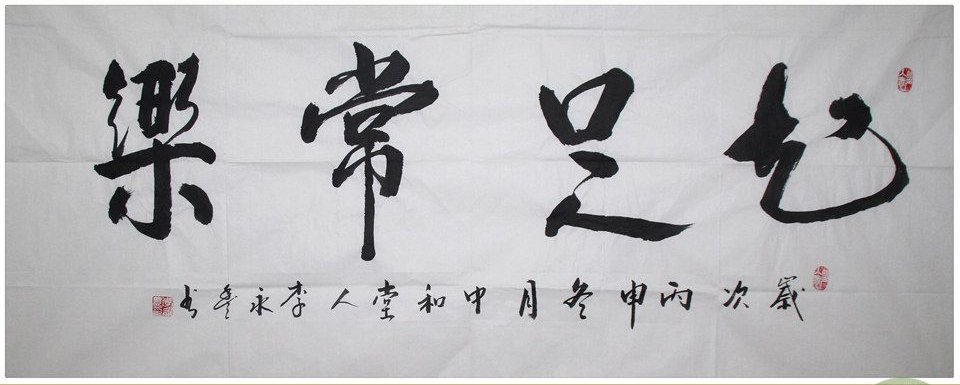 知足常樂
歲次丙申冬月中和堂人李永春書